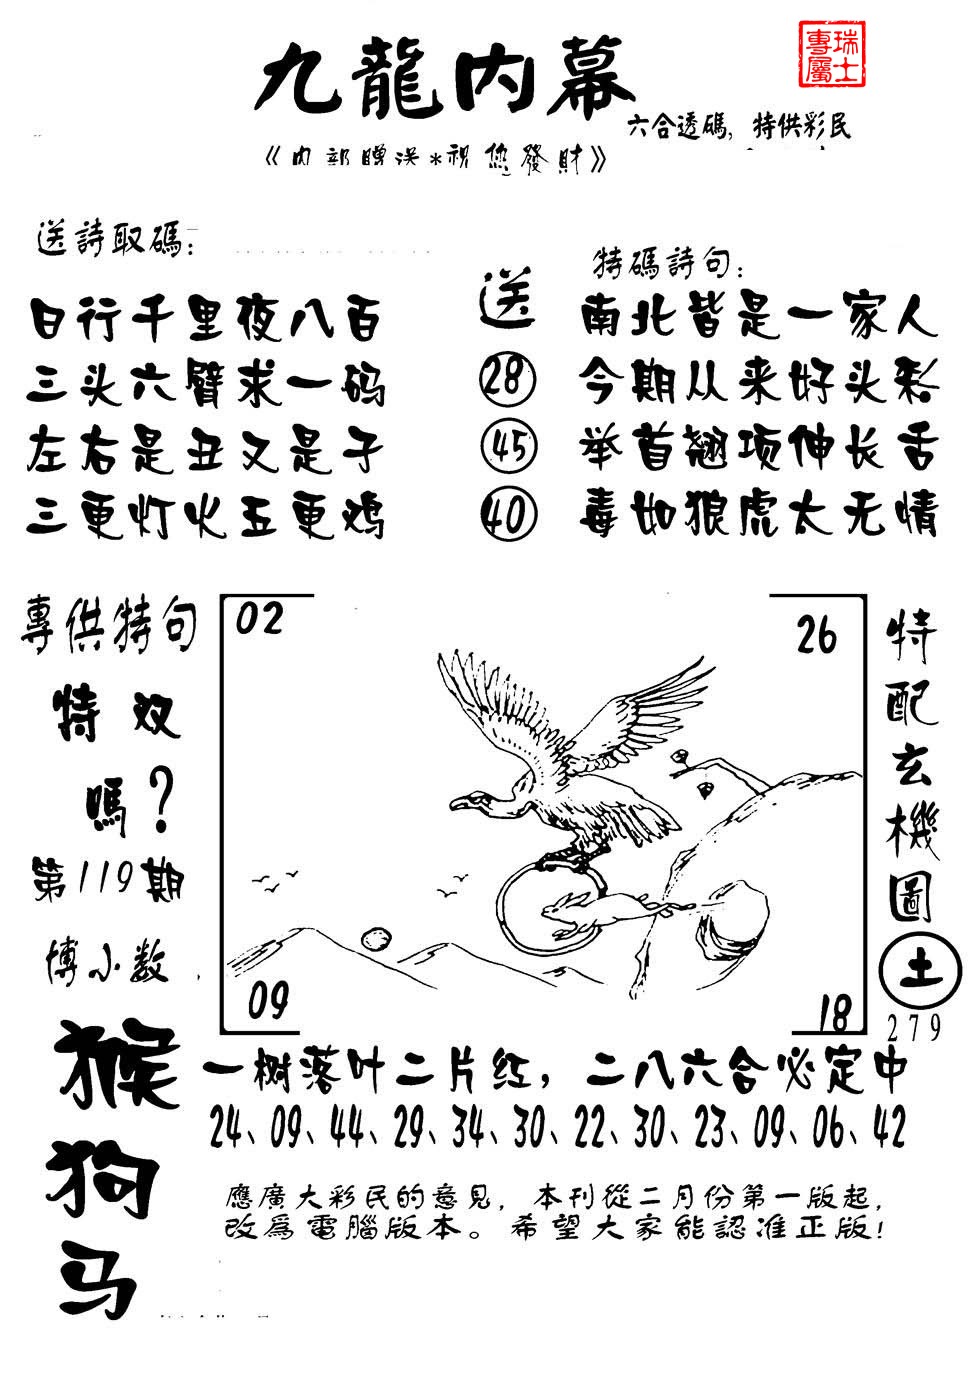 瑞士
專屬
九龍内幕
六合透碼，特供彩民
《内部贈送*祝您發財》
送詩取碼：
日行千里夜八百
三头六臂求一码
左右是丑又是子
三更灯火五更鸡
送
28
45
40
特碼詩句：
南北皆是一家人
今期从来好头彩
举首翘项伸长舌
毒如狼虎太无情
專供特句
特效
嗎？
第119期
博小数
猴
狗
马
02
26
09
18
特配玄機圖
土
279
一树落叶二片红，二八六合必定中
24、09、44、29、34、30、22、30、23、09、06、42
應廣大彩民的意見，本刊從二月份第一版起，
改爲電腦版本。希望大家能認准正版！